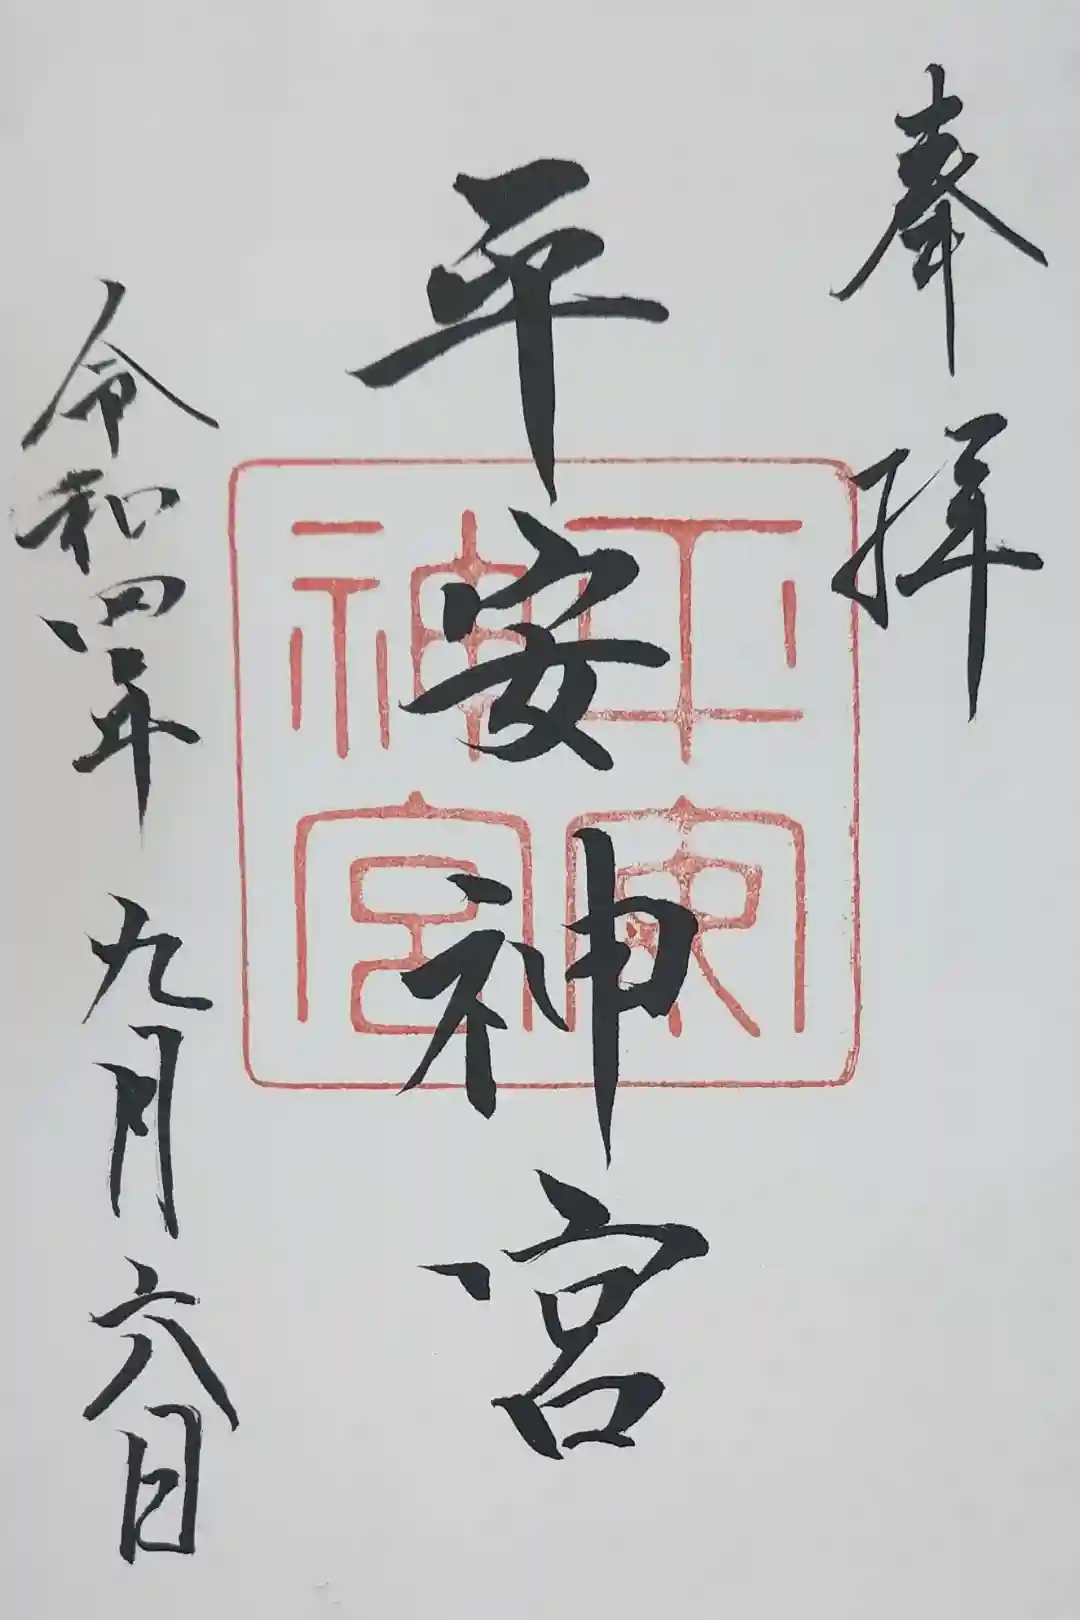 奉拝
平安神宮
平安神宮
令和四年九月六日